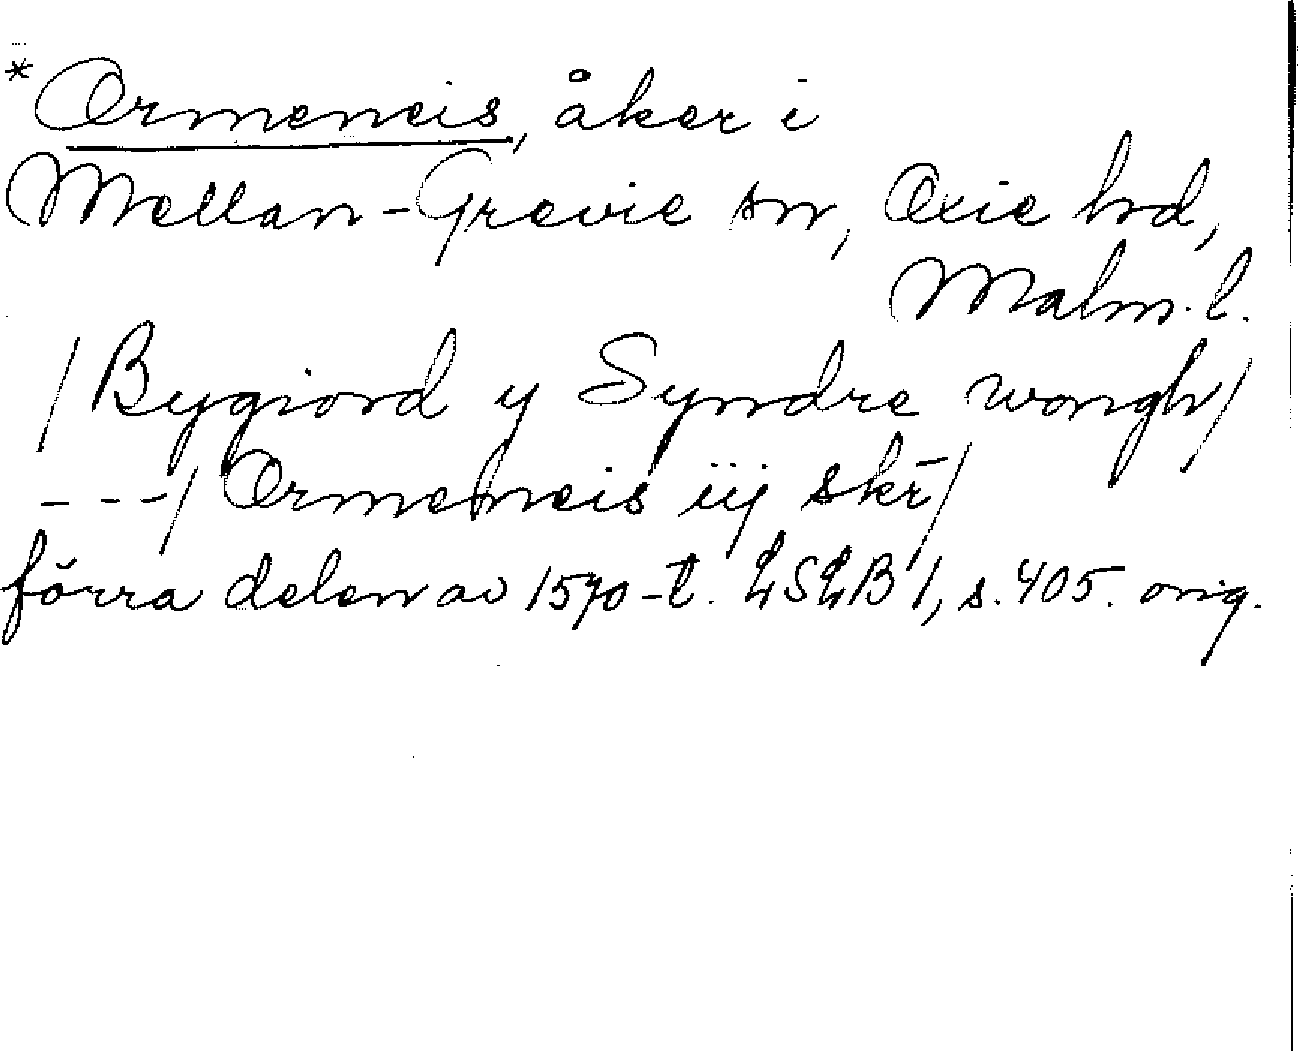 *Ormeneis, åker i
Mellan-Grevie sn, Oxie hd,
Malm. l.
/Bygiord y Syndre wongh/
---/Ormeneis iij skr̄/
förra delen av 1570-t. LSLB 1, s. 405. orig.